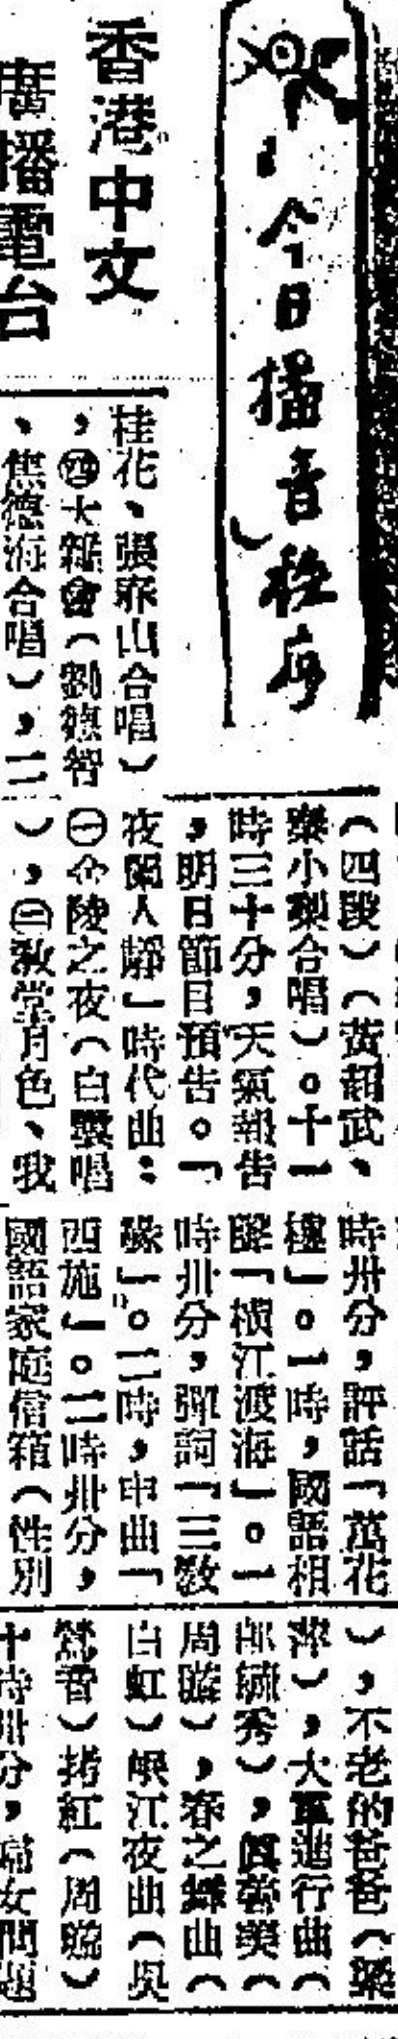 今日播音秩序
香港中文
廣播電台
桂花、張泰山合唱）
，㊃大雜會（劉德智
、焦德海合唱），二
（四段）（黃韶武、
小梨合唱）。十一
時三十分，天氣報告
，明日節目預告。「
夜闌人靜」時代曲：
㊀金陵之夜（白　唱
），㊁教堂月色、我
時卅分，評話「萬花
樓」。一時，國語相
聲「橫江渡海」。一
時卅分，彈詞「三教
緣」。二時，申曲「
西施」。二時卅分，
國語家庭信箱（性別
），不老的爸爸（梁
萍），大軍進行曲（
郎毓秀），真善美（
周璇），春之舞曲（
白虹）岷江夜曲（吳
鶯音）拷紅（周璇）
十時卅分，婦女問題